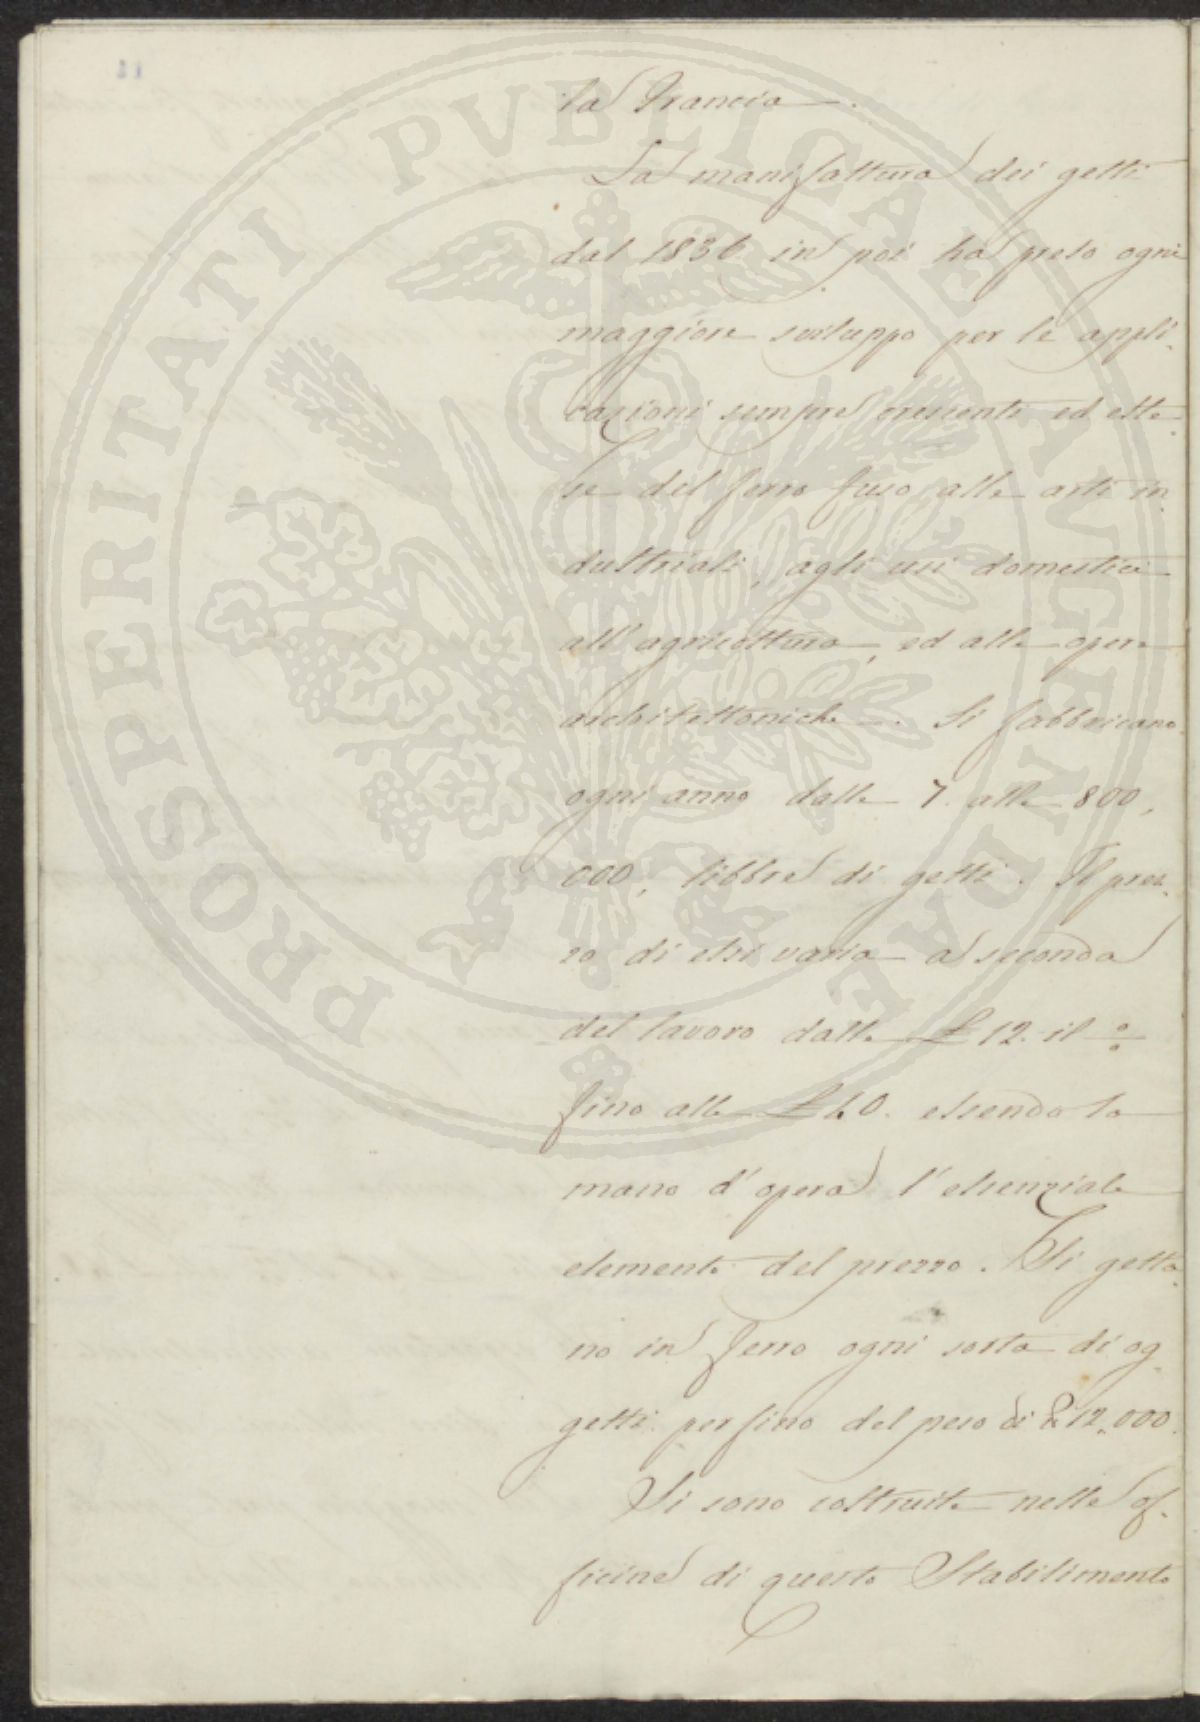 la Francia.
La manifattura dei getti
dal 1836 in poi ha preso ogni
maggiore sviluppo per le appli-
cazioni sempre crescenti ed este-
se del ferro fuso alle arti in-
dustriali, agli usi domestici
all'agricoltura, ed alle opere
architettoniche. Si fabbricano
ogni anno dalle 7. alle 800,
000, libbre di getti. Il prez-
zo di essi varia a seconda
del lavoro dalle £ 12. il %
fino alle £ 40. essendo la
mano d'opera l'essenziale
elemento del prezzo. Si getta-
no in ferro ogni sorta di og-
getti perfino del peso di 12,000.
Si sono costruite nelle of-
ficine di questo Stabilimento
PROSPERITATI PVBLICAE AVGENDAE